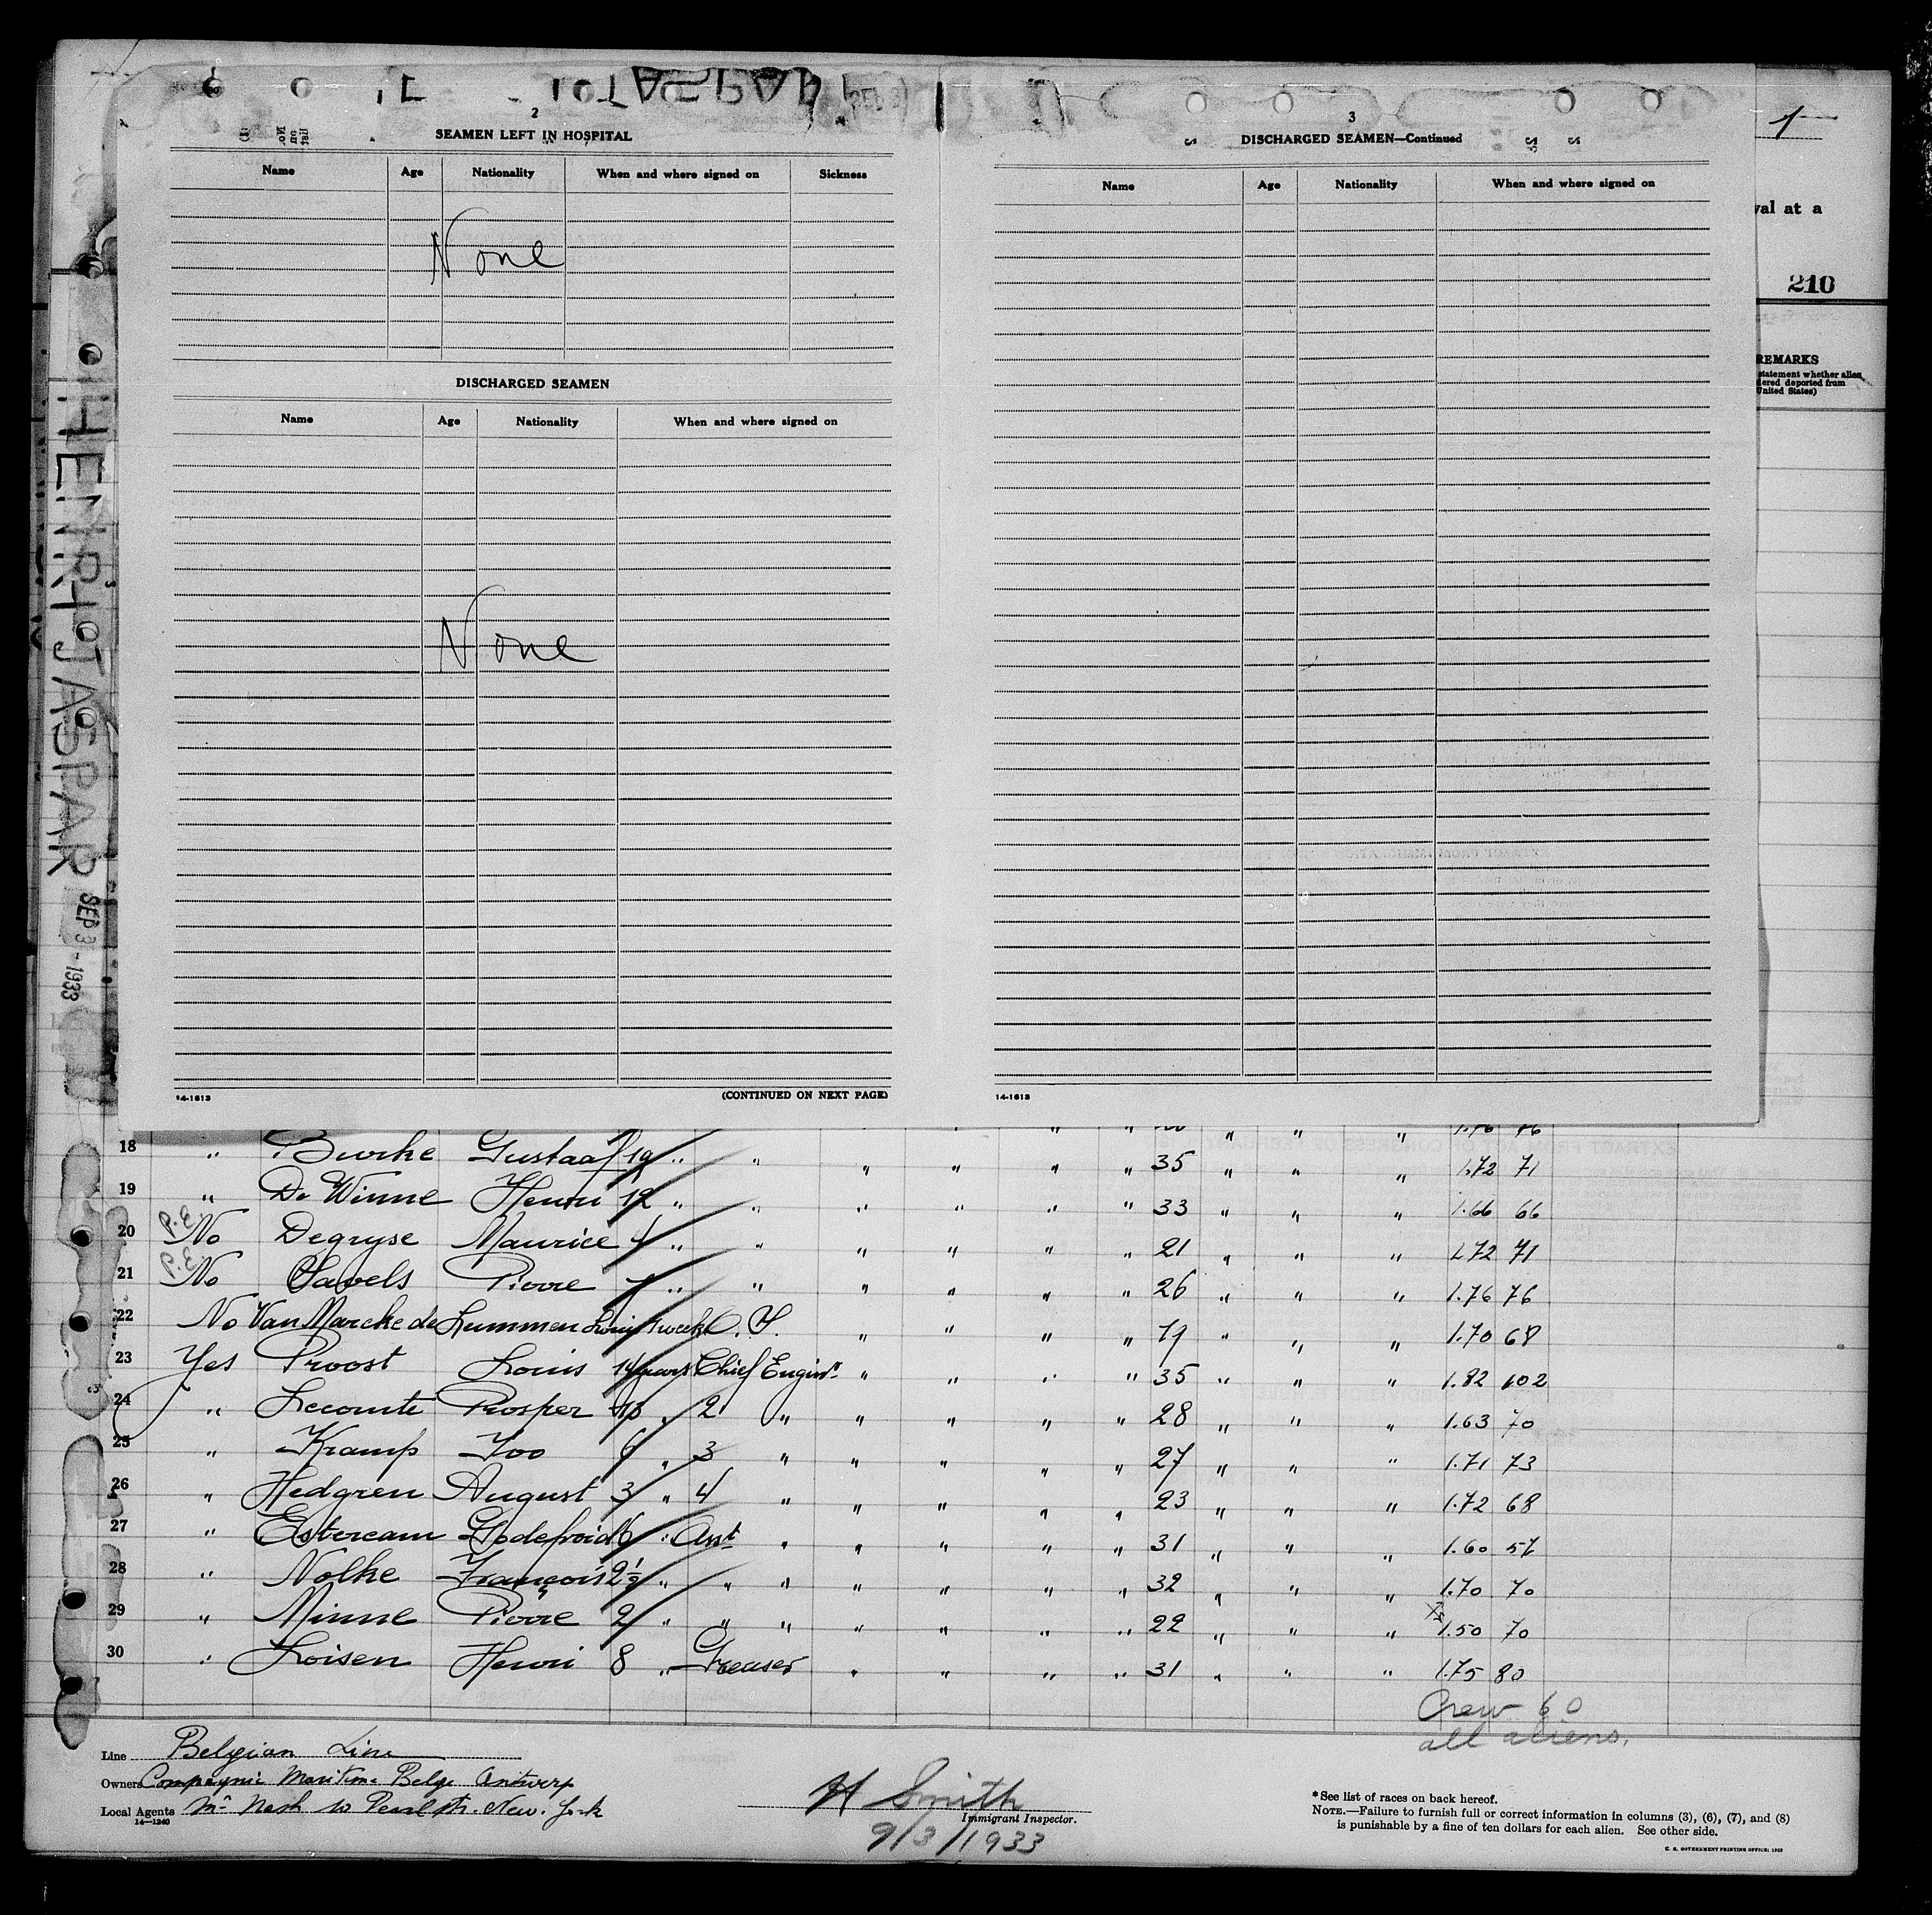 HENRI JASPAR SEP 3 - 1933
2
SEAMEN LEFT IN HOSPITAL
Name Age Nationality When and where signed on Sickness
None
DISCHARGED SEAMEN
Name Age Nationality When and where signed on
None
14-1613 (CONTINUED ON NEXT PAGE)
3
DISCHARGED SEAMEN—Continued
Name Age Nationality When and where signed on
14-1613
1
val at a
210
REMARKS
statement whether alien
dered deported from
United States)
18 " Burke Gustaaf 19 " " " " " " 35 " " " 1.72 71
19 " De Winne Henri 12 " " " " " " 33 " " " 1.66 66
20 P.E. No Degryse Maurice 4 " " " " " " 21 " " " 1.72 71
21 P.E. No Savels Pierre " " " " " " 26 " " " 1.76 76
22 No Van Marcke de Lummen Louis 1 week O.S. " " " " 19 " " " 1.70 68
23 Yes Proost Louis 14 years Chief Engin'r " " " " 35 " " " 1.82 102
24 " Lecomte Prosper 10 " 2 " " " " " 28 " " " 1.63 70
25 " Kramp Ivo 6 " 3 " " " " " 27 " " " 1.71 73
26 " Hedgren August 3 " 4 " " " " " 23 " " " 1.72 68
27 " Estercam Godefroid 6 " Asst " " " " " 31 " " " 1.60 57
28 " Nolke François 2½ " " " " " " " 32 " " " 1.70 70
29 " Minne Pierre 2 " " " " " " " 22 " " " 1.50 70
30 " Loisen Henri 8 " Greaser " " " " 31 " " " 1.75 80
Crew 60
all aliens.
Line Belgian Line
Owners Compagnie Maritime Belge Antwerp
Local Agents Mr Nash 10 Pearl Str. New. York
14—1240
H Smith
Immigrant Inspector.
9/3/1933
*See list of races on back hereof.
NOTE.—Failure to furnish full or correct information in columns (3), (6), (7), and (8)
is punishable by a fine of ten dollars for each alien. See other side.
U. S. GOVERNMENT PRINTING OFFICE: 1932